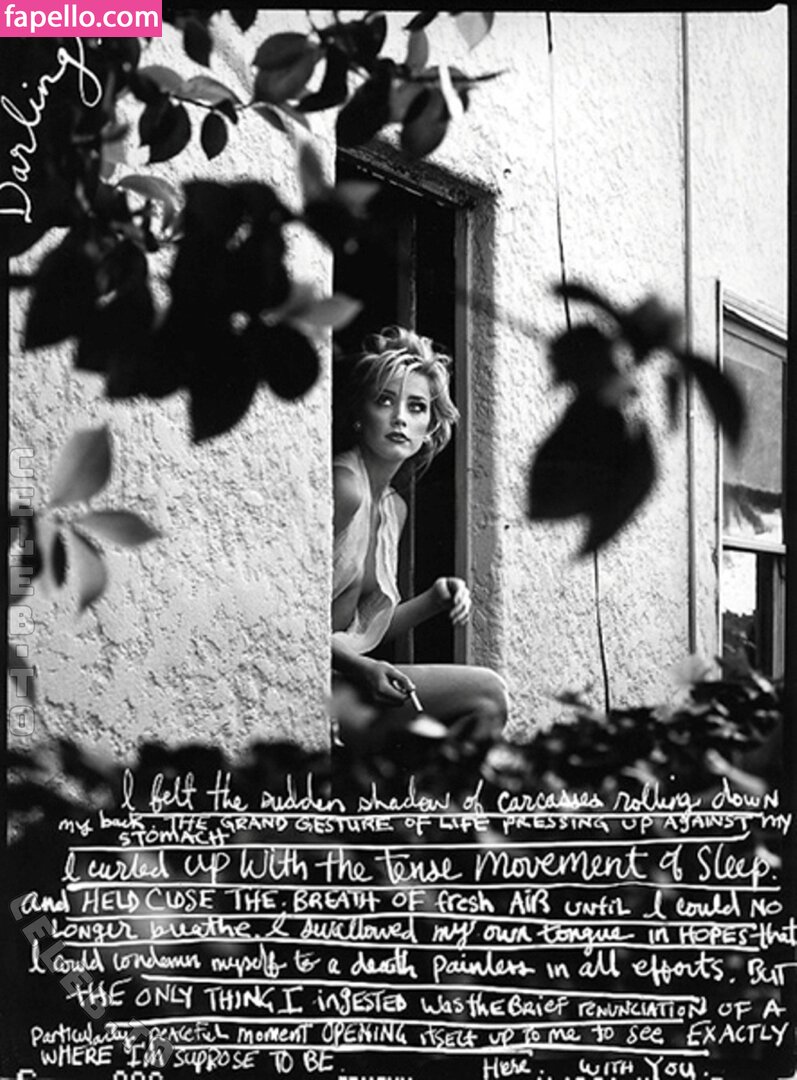 fapello.com
Darling
CELEB.TO
I felt the sudden shadow of carcasses rolling down
my back. THE GRAND GESTURE OF LIFE PRESSING UP AGAINST MY
STOMACH
I curled UP With the tense MOVEMENT of Sleep.
and HELD CLOSE THE BREATH OF fresh AIR UNTIL I could NO
longer breathe. I swallowed my own tongue in HOPES that
I could condemn myself to a death painless in all efforts. BUT
THE ONLY THING I ingested was the Brief renunciation OF A
Particularly peaceful moment OPENING itself up to me to see EXACTLY
WHERE I'M SUPROSE TO BE. Here. WITH YOU.
CELEB.TO